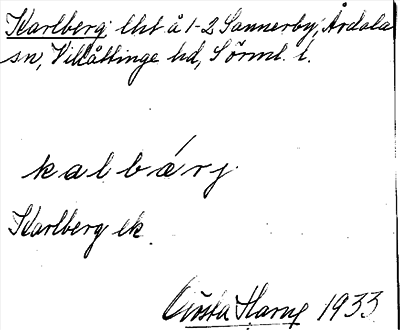 Karlberg, lht å 1-2 Sannerby, Årdala
sn, Villåttinge hd, Sörml. l.
kalbárj
Karlberg ek
Gösta Harng 1933